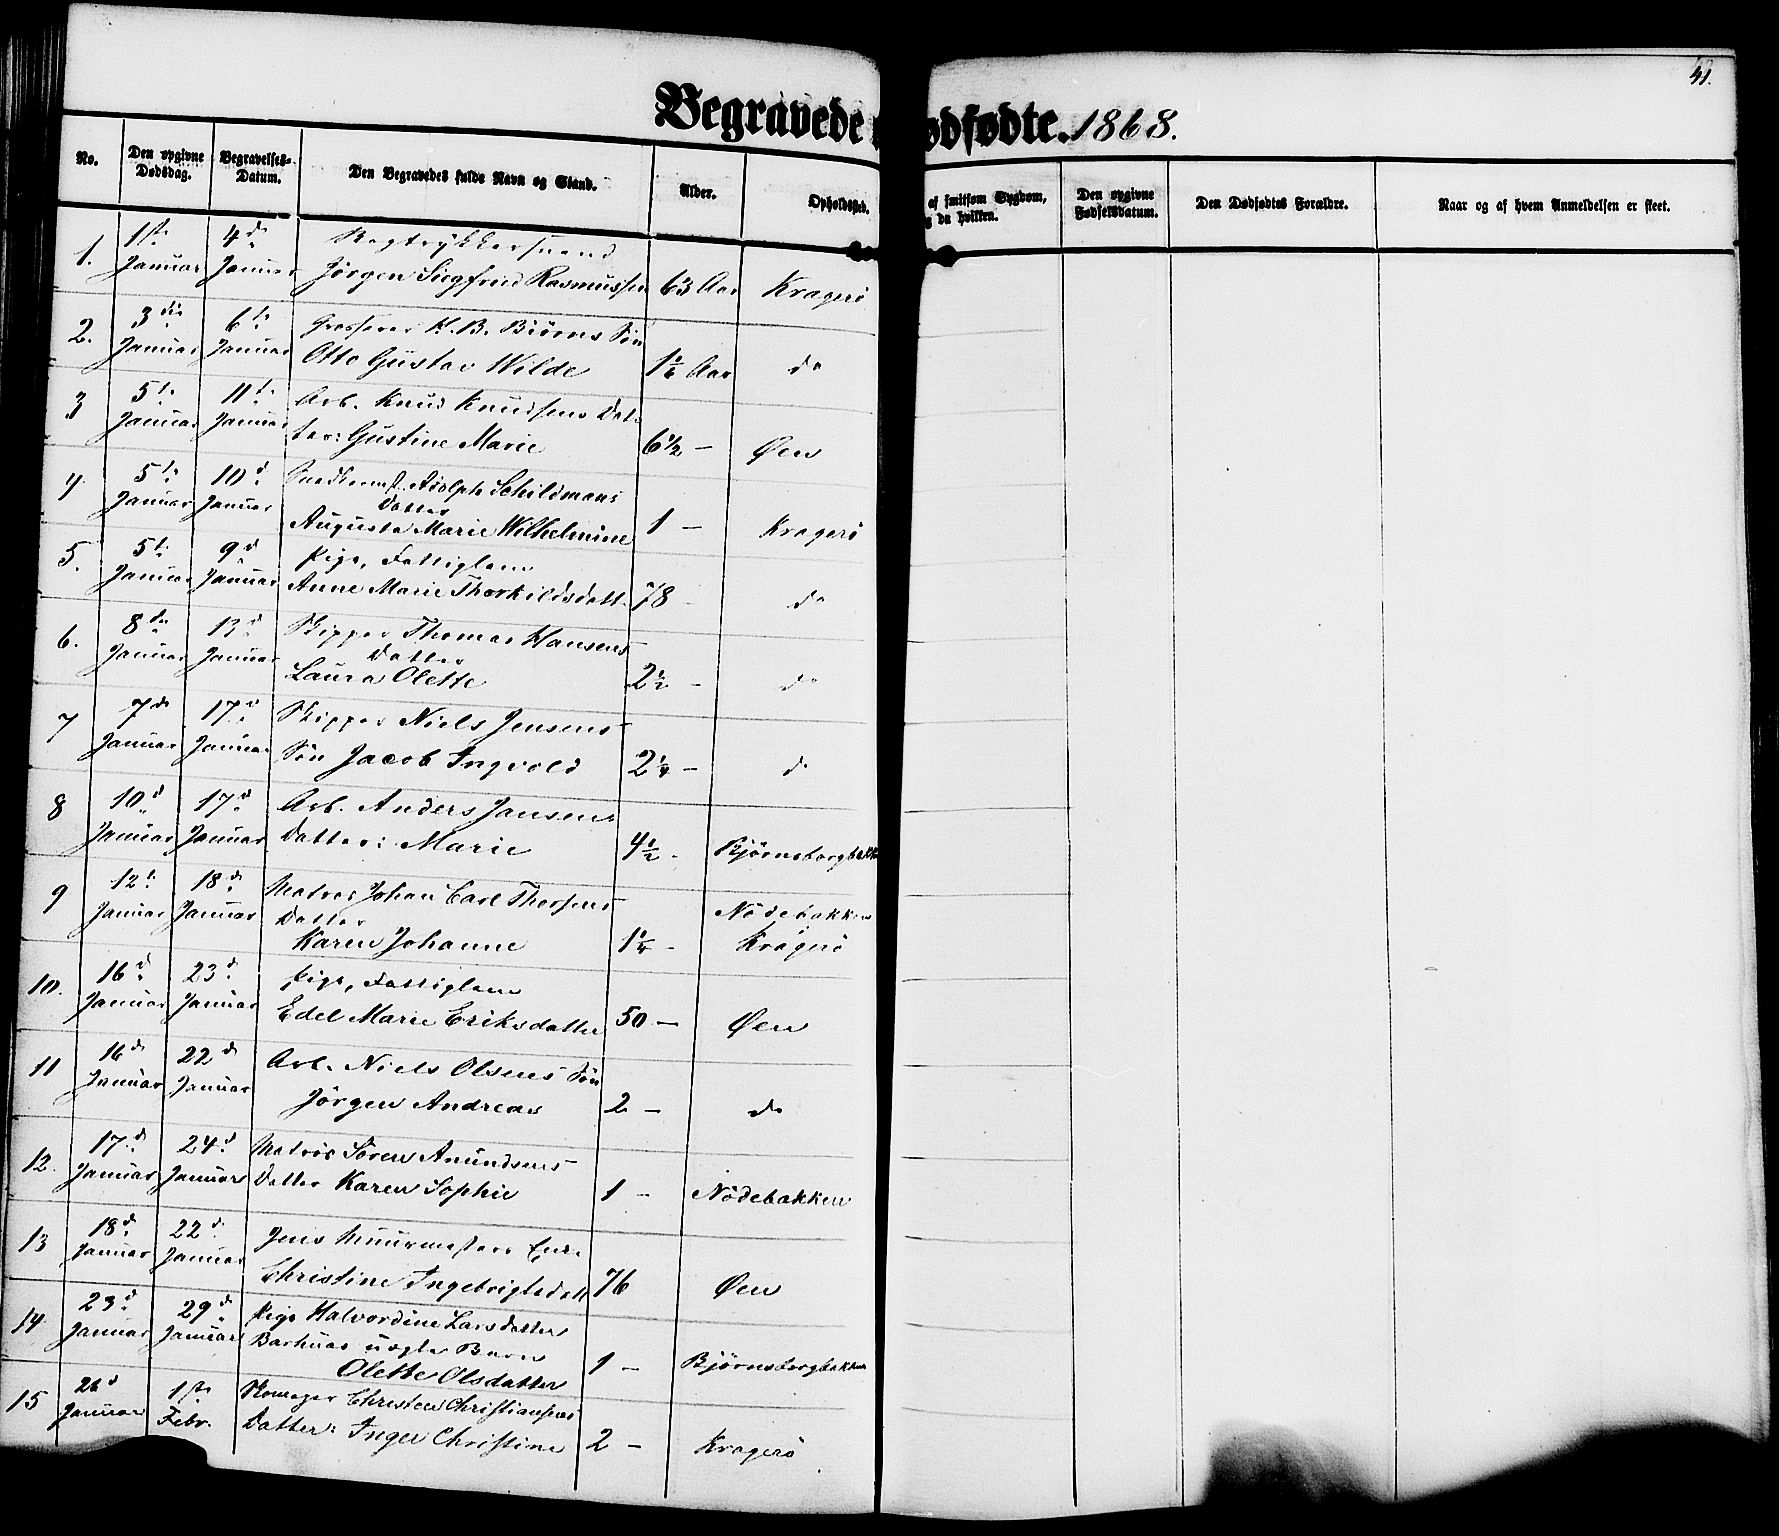 41.
Begravede
ødfødte. 1868.
No.
Den opgivne Dødsdag.
Begravelses-Datum.
Den Begravedes fulde Navn og Stand.
Alder.
Opholdssted.
af smitsom Sygdom,
da hvilken.
Den opgivne Fødselsdatum.
Den Dødfødtes Forældre.
Naar og af hvem Anmeldelsen er skeet.
1. 1ste Januar 4de Januar Bogtrykkersvend
Jørgen Siegfried Rasmussen 63 Aar Kragerö
2. 3die Januar 6te Januar Grosserer H. B. Biörns Sön
Otto Gustav Wilde Aar do
3 5te Januar 11te Januar Arb. Knud Knudsens Dat-
ter: Gustine Marie 6 1/2 — Øen
4 5te Januar 10d Januar Snedkermst. Adolph Schildmans
Datter
Augusta Marie Wilhelmine 1 — Kragerö
5. 5te Januar 9d Januar Pige, Fattiglem
Anne Marie Thorkildsdatt. 78 - do
6. 8de Januar 13d Januar Skipper Thomas Hansens
Datter
Laura Olette 2 1/2 — do
7 7de Januar 17d Januar Skipper Niels Jensens
Sön Jacob Ingvold 2 1/4 — d
8 10d Januar 17d Januar Arb. Anders Jansens
Datter: Marie 4 1/2 - Bjørnsborgbakken
9 12te Januar 18de Januar Matros Johan Carl Thorsens
Datter Nödebakken
Karen Johanne 1 1/4 - Kragerö
10. 16d Januar 23d Januar Pige, Fattiglem
Edel Marie Eriksdatter 50 — Øen
11 16de Januar 22de Januar Arb. Niels Olsens Sön
Jörgen Andreas 2 — do
12. 17d Januar 24d Januar Matros Sören Anundsens
Datter Karen Sophie 1 — Nödebakken
13 18d Januar 22d Januar Jens Muurmesters Enke
Christine Ingebrigtsdatt 76 Øen
14 23d Januar 29d Januar Pige Halvordine Larsdatter
Barhuus uægte Barn
Olette Olsdatter 1 — Bjørnsborgbakken
15 26d Januar 1ste Febr. Skomager Christen Christiansens
Datter: Inger Christine 2 — Kragerö